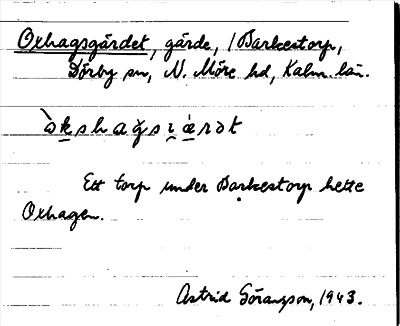 Oxhagsgärdet, gärde, i Barkestorp,
Dörby sn, N. Möre hd, Kalm. län.
Ett torp under Barkestorp hette
Oxhagen.
Astrid Göransson, 1943.